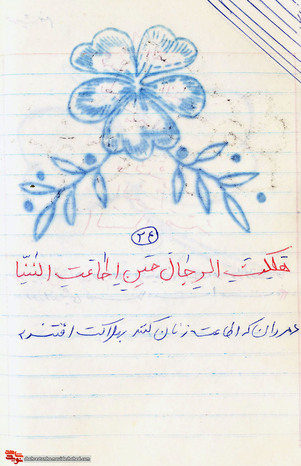 ۲۴
هلکت الرجال حین اطاعت النسا
مردان که اطاعت زنان کنند بهلاکت افتند